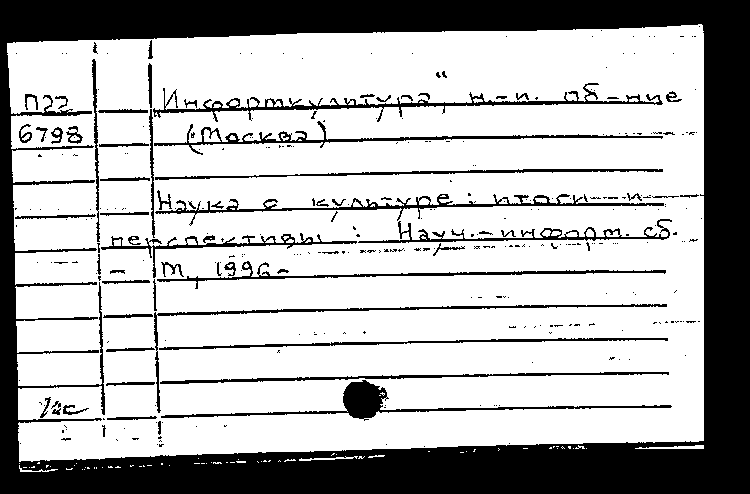 П22 „Информкультура“, н.-и. об-ние
6798 (Москва)
Наука о культуре: итоги и
перспективы: Науч.-информ. сб.
- М., 1996-